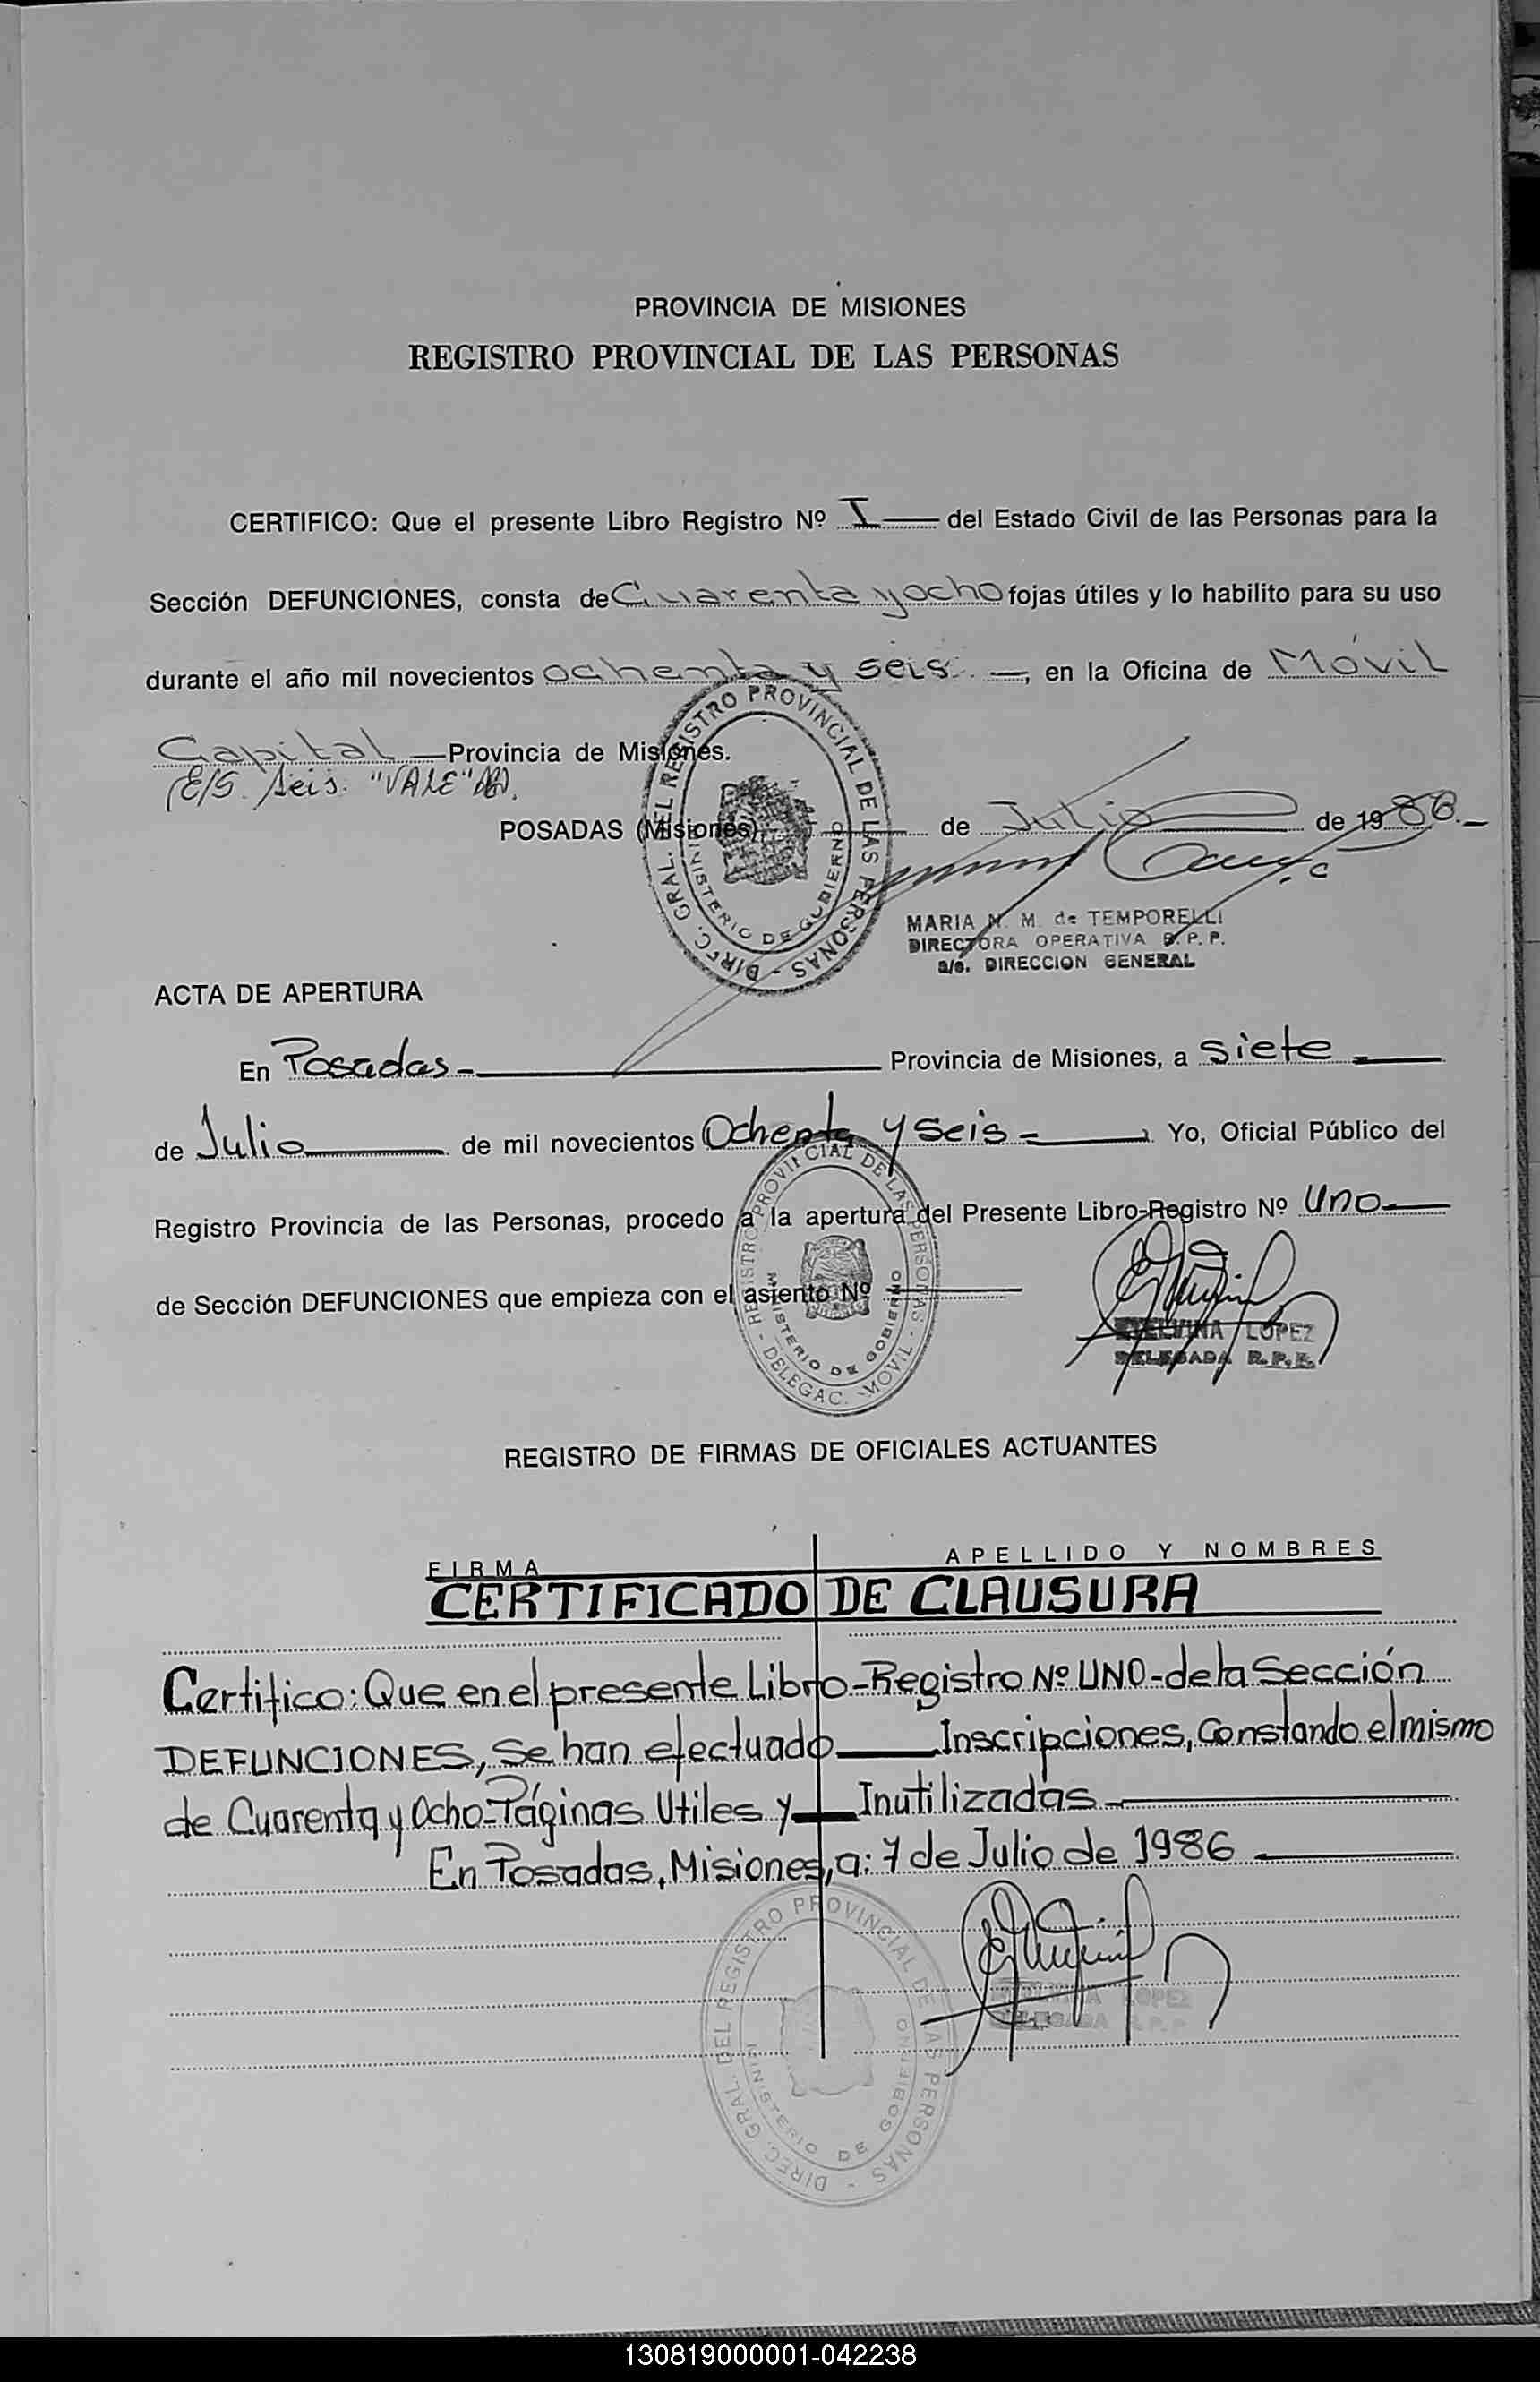 PROVINCIA DE MISIONES
REGISTRO PROVINCIAL DE LAS PERSONAS
CERTIFICO: Que el presente Libro Registro Nº I del Estado Civil de las Personas para la
Sección DEFUNCIONES, consta de Cuarenta y ocho fojas útiles y lo habilito para su uso
durante el año mil novecientos ochenta y seis.—, en la Oficina de Móvil
Capital — Provincia de Misiones.
E/S. seis. "VALE"
POSADAS (Misiones), de Julio de 1986.—
DIREC. GRAL. DEL REGISTRO PROVINCIAL DE LAS PERSONAS -
MINISTERIO DE GOBIERNO
MARIA N. M. de TEMPORELLI
DIRECTORA OPERATIVA R. P. P.
a/c. DIRECCION GENERAL
ACTA DE APERTURA
En Posadas- Provincia de Misiones, a Siete
de Julio de mil novecientos Ochenta y Seis - Yo, Oficial Público del
Registro Provincia de las Personas, procedo a la apertura del Presente Libro-Registro Nº Uno
de Sección DEFUNCIONES que empieza con el asiento Nº
REGISTRO PROVINCIAL DE LAS PERSONAS - DELEGAC. MOVIL -
MINISTERIO DE GOBIERNO
ETELVINA LOPEZ
DELEGADA R. P. P.
REGISTRO DE FIRMAS DE OFICIALES ACTUANTES
FIRMA APELLIDO Y NOMBRES
CERTIFICADO DE CLAUSURA
Certifico: Que en el presente Libro-Registro Nº UNO-de la Sección
DEFUNCIONES, Se han efectuado Inscripciones, Constando el mismo
de Cuarenta y Ocho-Páginas Utiles y — Inutilizadas
En Posadas, Misiones, a: 7 de Julio de 1986
DIREC. GRAL. DEL REGISTRO PROVINCIAL DE LAS PERSONAS -
MINISTERIO DE GOBIERNO
LOPEZ
DELEGADA R. P. P.
130819000001-042238